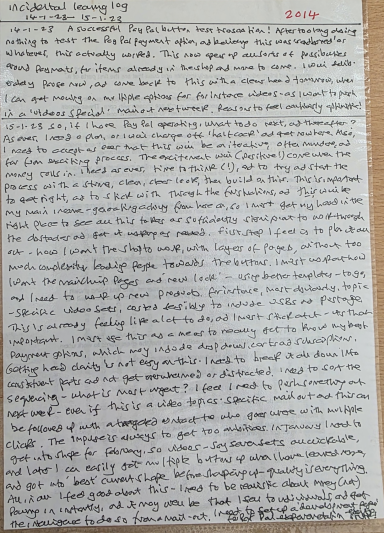 incidental learning log
14-1-23 - 15-1-23
2014
14-1-23 A successful PayPal button test transaction! After too long doing
nothing to test the PayPal payment option, and
whatever, this actually worked. This now opens up all sorts of possibilities
around payments, for items already in the shop and more to come. I will
pause now, and come back to this with a clear head tomorrow, when
I can get moving on multiple options for for instance videos - as I want to
in a 'Videos Special' mail out next week. Reasons to feel
15-1-23 So, if I have PayPal operating, what to do next, and thereafter?
As ever, I need to plan, or I will charge off 'half cock' and get nowhere. Also,
I need to accept as ever that this will be an iterative, often mundane, and
far from exciting process. The excitement will (perhaps!) come when the
money rolls in. I need as ever, time to think (!), and to try and start the
process with a strong, clear, clear look that build on this. This is important
to get right, and to stick with. Through the frustrations, and this will be
my main income - generating activity from here on, so I must get my head in the
right place to see all this takes as sufficiently significant to work through
the obstacles and get it up and as needed. First step I feel is to plot it all
out - how I want the shop to work, with layers of pages, without too
much complexity leading people towards the buttons. I must work out how
I want the main shop pages and 'new look' - using better templates - to go,
and I need to work up new products, for instance, most obviously, topic
- specific video sets, costed sensibly to include USBs and postage.
This is already feeling like a lot to do, and I must stick at it - its that
important. I must use this as a means to really get to know my best
payment options, which may include drop downs, carts and subscriptions.
Getting head clarity is not easy on this. I need to break it all down into
constituent parts and not get overwhelmed or distracted. I need to sort the
sequencing - what is most urgent? I feel I need to push something out
next week - even if this is a video topics' specific mail out and this can
be followed up with a targeted contact to who goes where with multiple
clicks. The impulse is always to get too ambitious. In January I need to
get into shape for February, so videos - say seven sets all clickable,
and later I can easily get multiple buttons up when I have learned more,
and got into best current shape before sharpening up - quality is everything.
All in all I feel good about this - I need to be realistic about money (not)
flowing in instantly, and it may well be that I sell to individuals and get
the to do so from a mail-out. I need to set up a